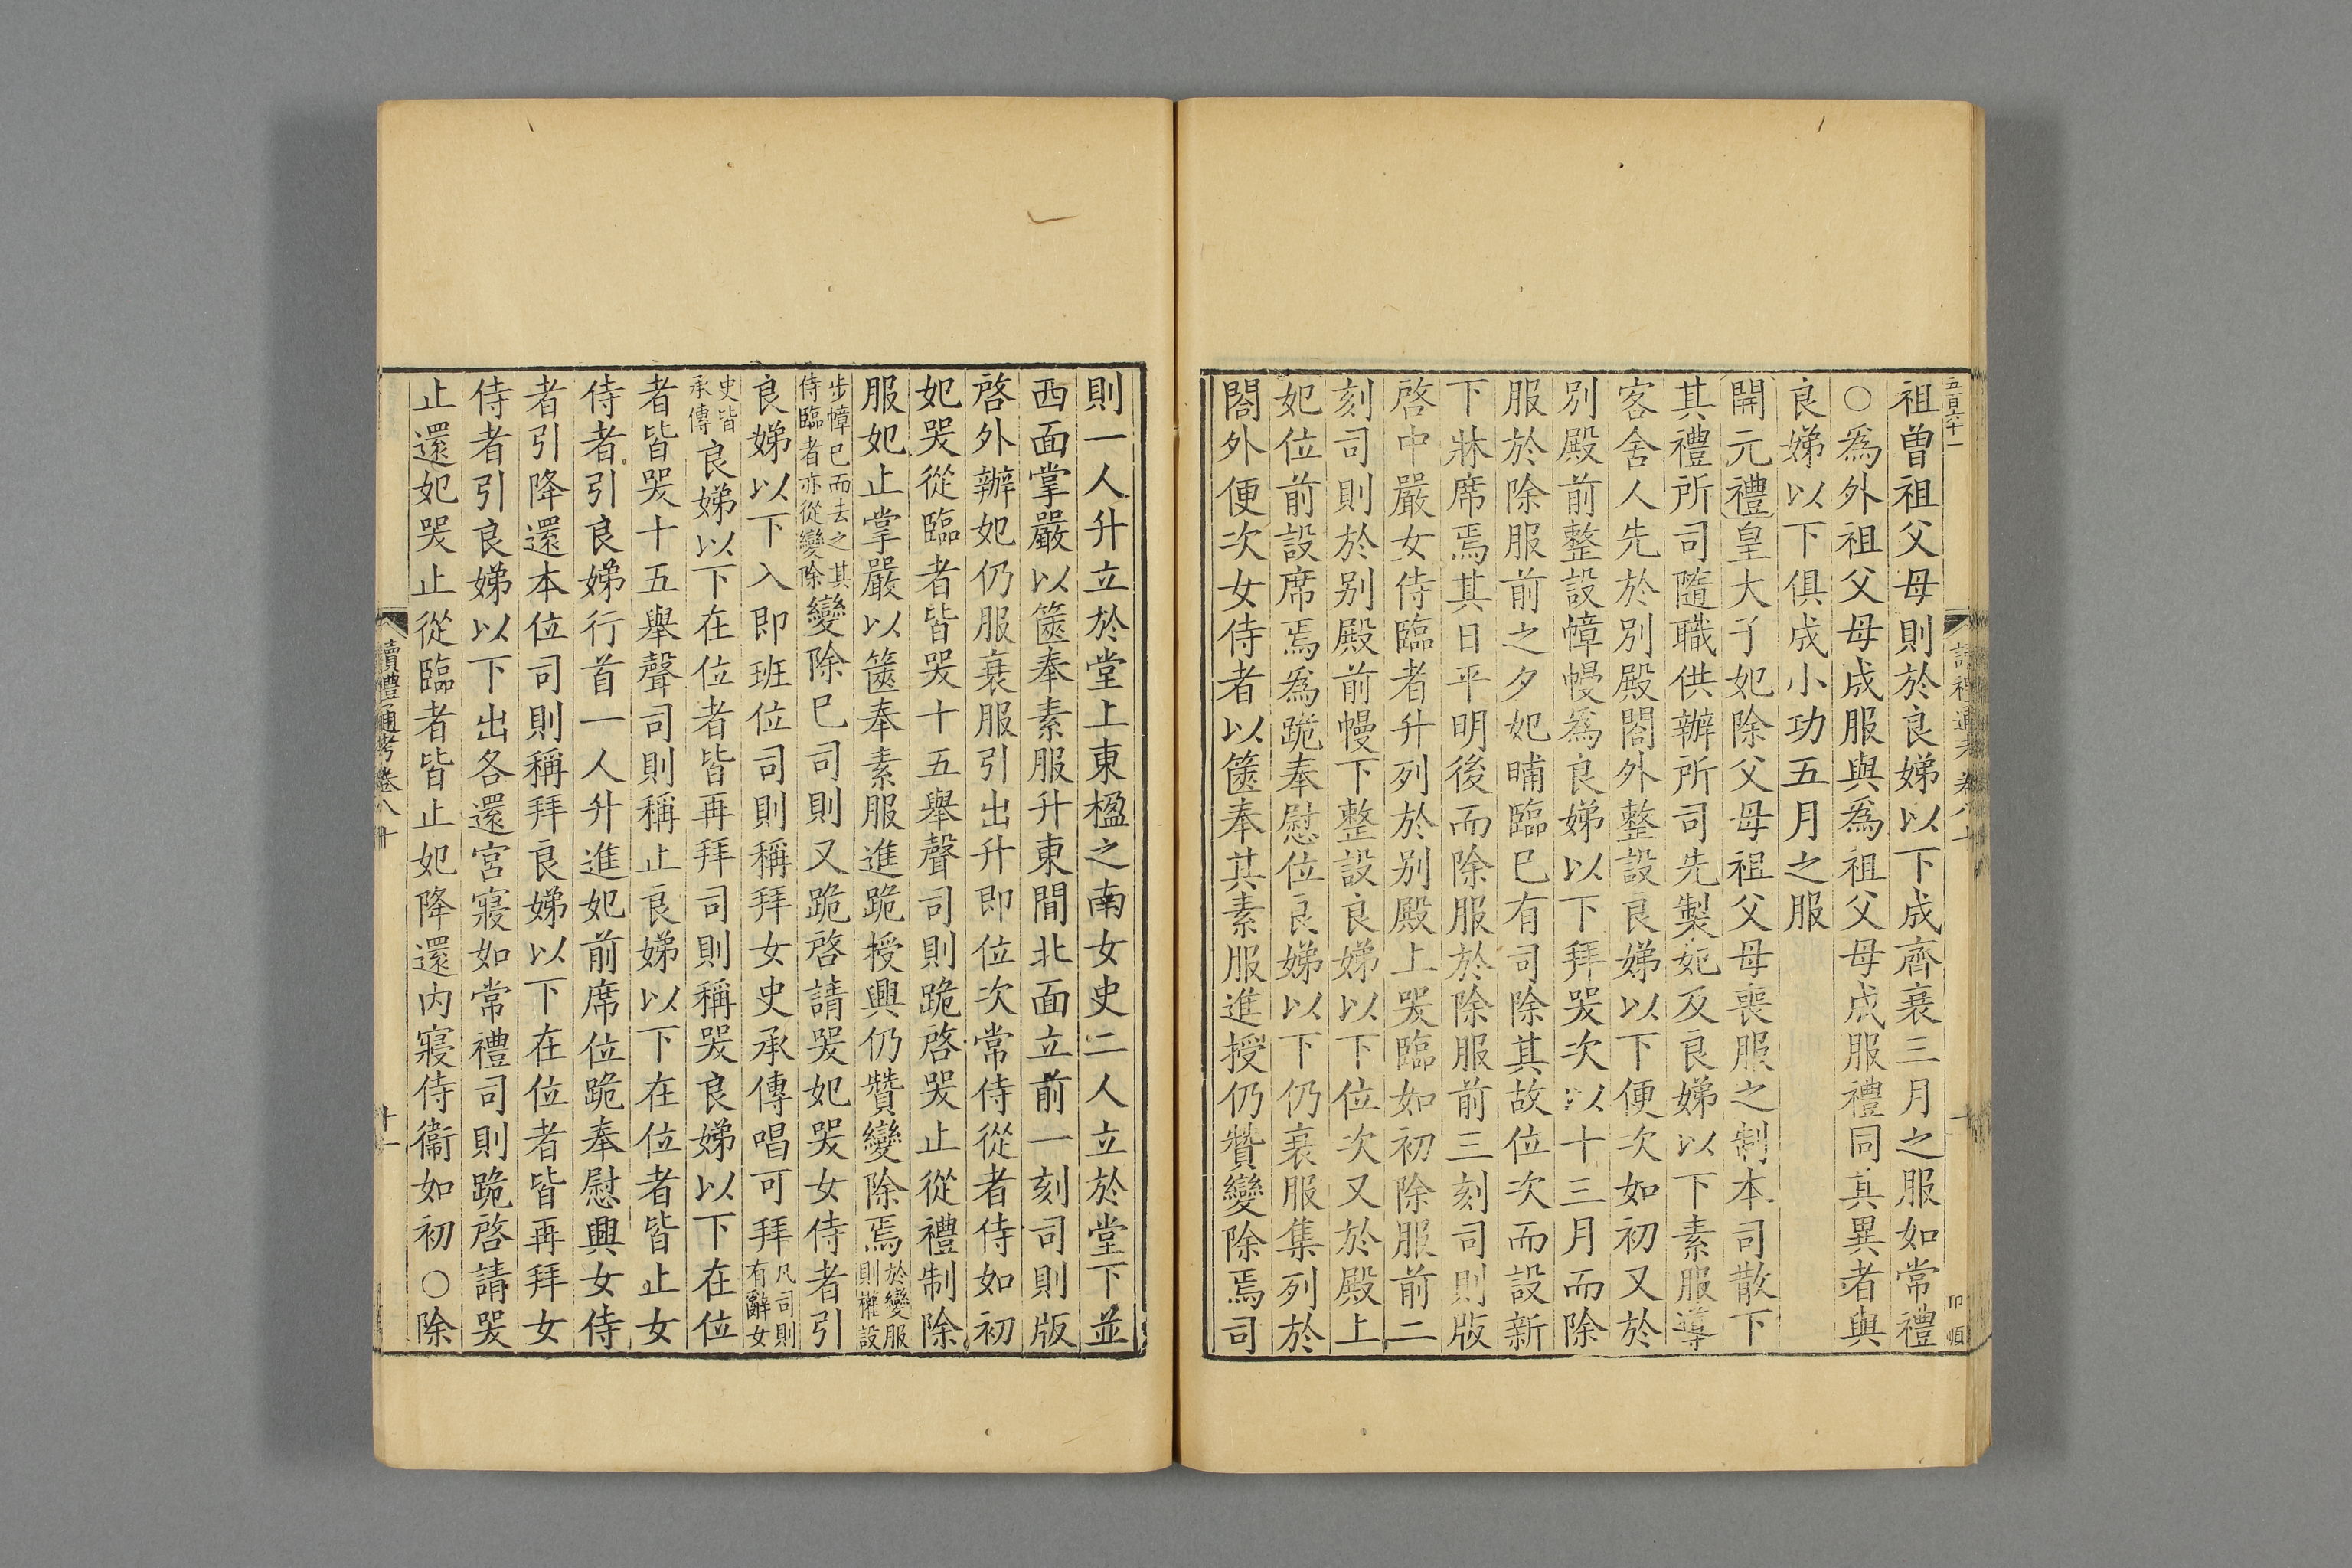 五百六十一
祖曾祖父母則於良娣以下成齊衰三月之服如常禮
○爲外祖父母成服與爲祖父母成服禮同其異者與
良娣以下俱成小功五月之服
開元禮皇大子妃除父母祖父母喪服之制本司散下
其禮所司隨職供辦所司先製妃及良娣以下素服導
客舍人先於別殿閤外整設良娣以下便次如初又於
別殿前整設幛幔爲良娣以下拜哭次以十三月而除
服於除服前之夕妃晡臨巳有司除其故位次而設新
下牀席焉其日平明後而除服於除服前三刻司則版
啓中嚴女侍臨者升列於别殿上哭臨如初除服前二
刻司則於别殿前幔下整設良娣以下位次又於殿上
妃位前設席焉爲跪奉慰位良娣以下仍衰服集列於
閤外便次女侍者以篋奉其素服進授仍贊變除焉司
則一人升立於堂上東楹之南女史二人立於堂下並
西面掌嚴以篋奉素服升東間北面立前一刻司則版
啓外辦妃仍服衰服引出升即位次常侍從者侍如初
妃哭從臨者皆哭十五舉聲司則跪啓哭止從禮制除
服妃止掌嚴以篋奉素服進跪授興仍贊變除焉於變服則權設
步幛巳而去之其侍臨者亦從變除變除巳司則又跪啓請哭妃哭女侍者引
良娣以下入即班位司則稱拜女史承傳唱可拜凡司則有辭女
史皆承傳良娣以下在位者皆再拜司則稱哭良娣以下在位
者皆哭十五舉聲司則稱止良娣以下在位者皆止女
侍者引良娣行首一人升進妃前席位跪奉慰興女侍
者引降還本位司則稱拜良娣以下在位者皆再拜女
侍者引良娣以下出各還宮寢如常禮司則跪啓請哭
止還妃哭止從臨者皆止妃降還内寢侍衞如初○除
讀禮通考卷八十
十一